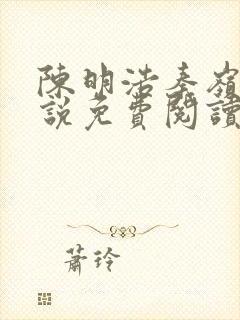 陳明浩秦嶺
說免費閱讀
蕭玲